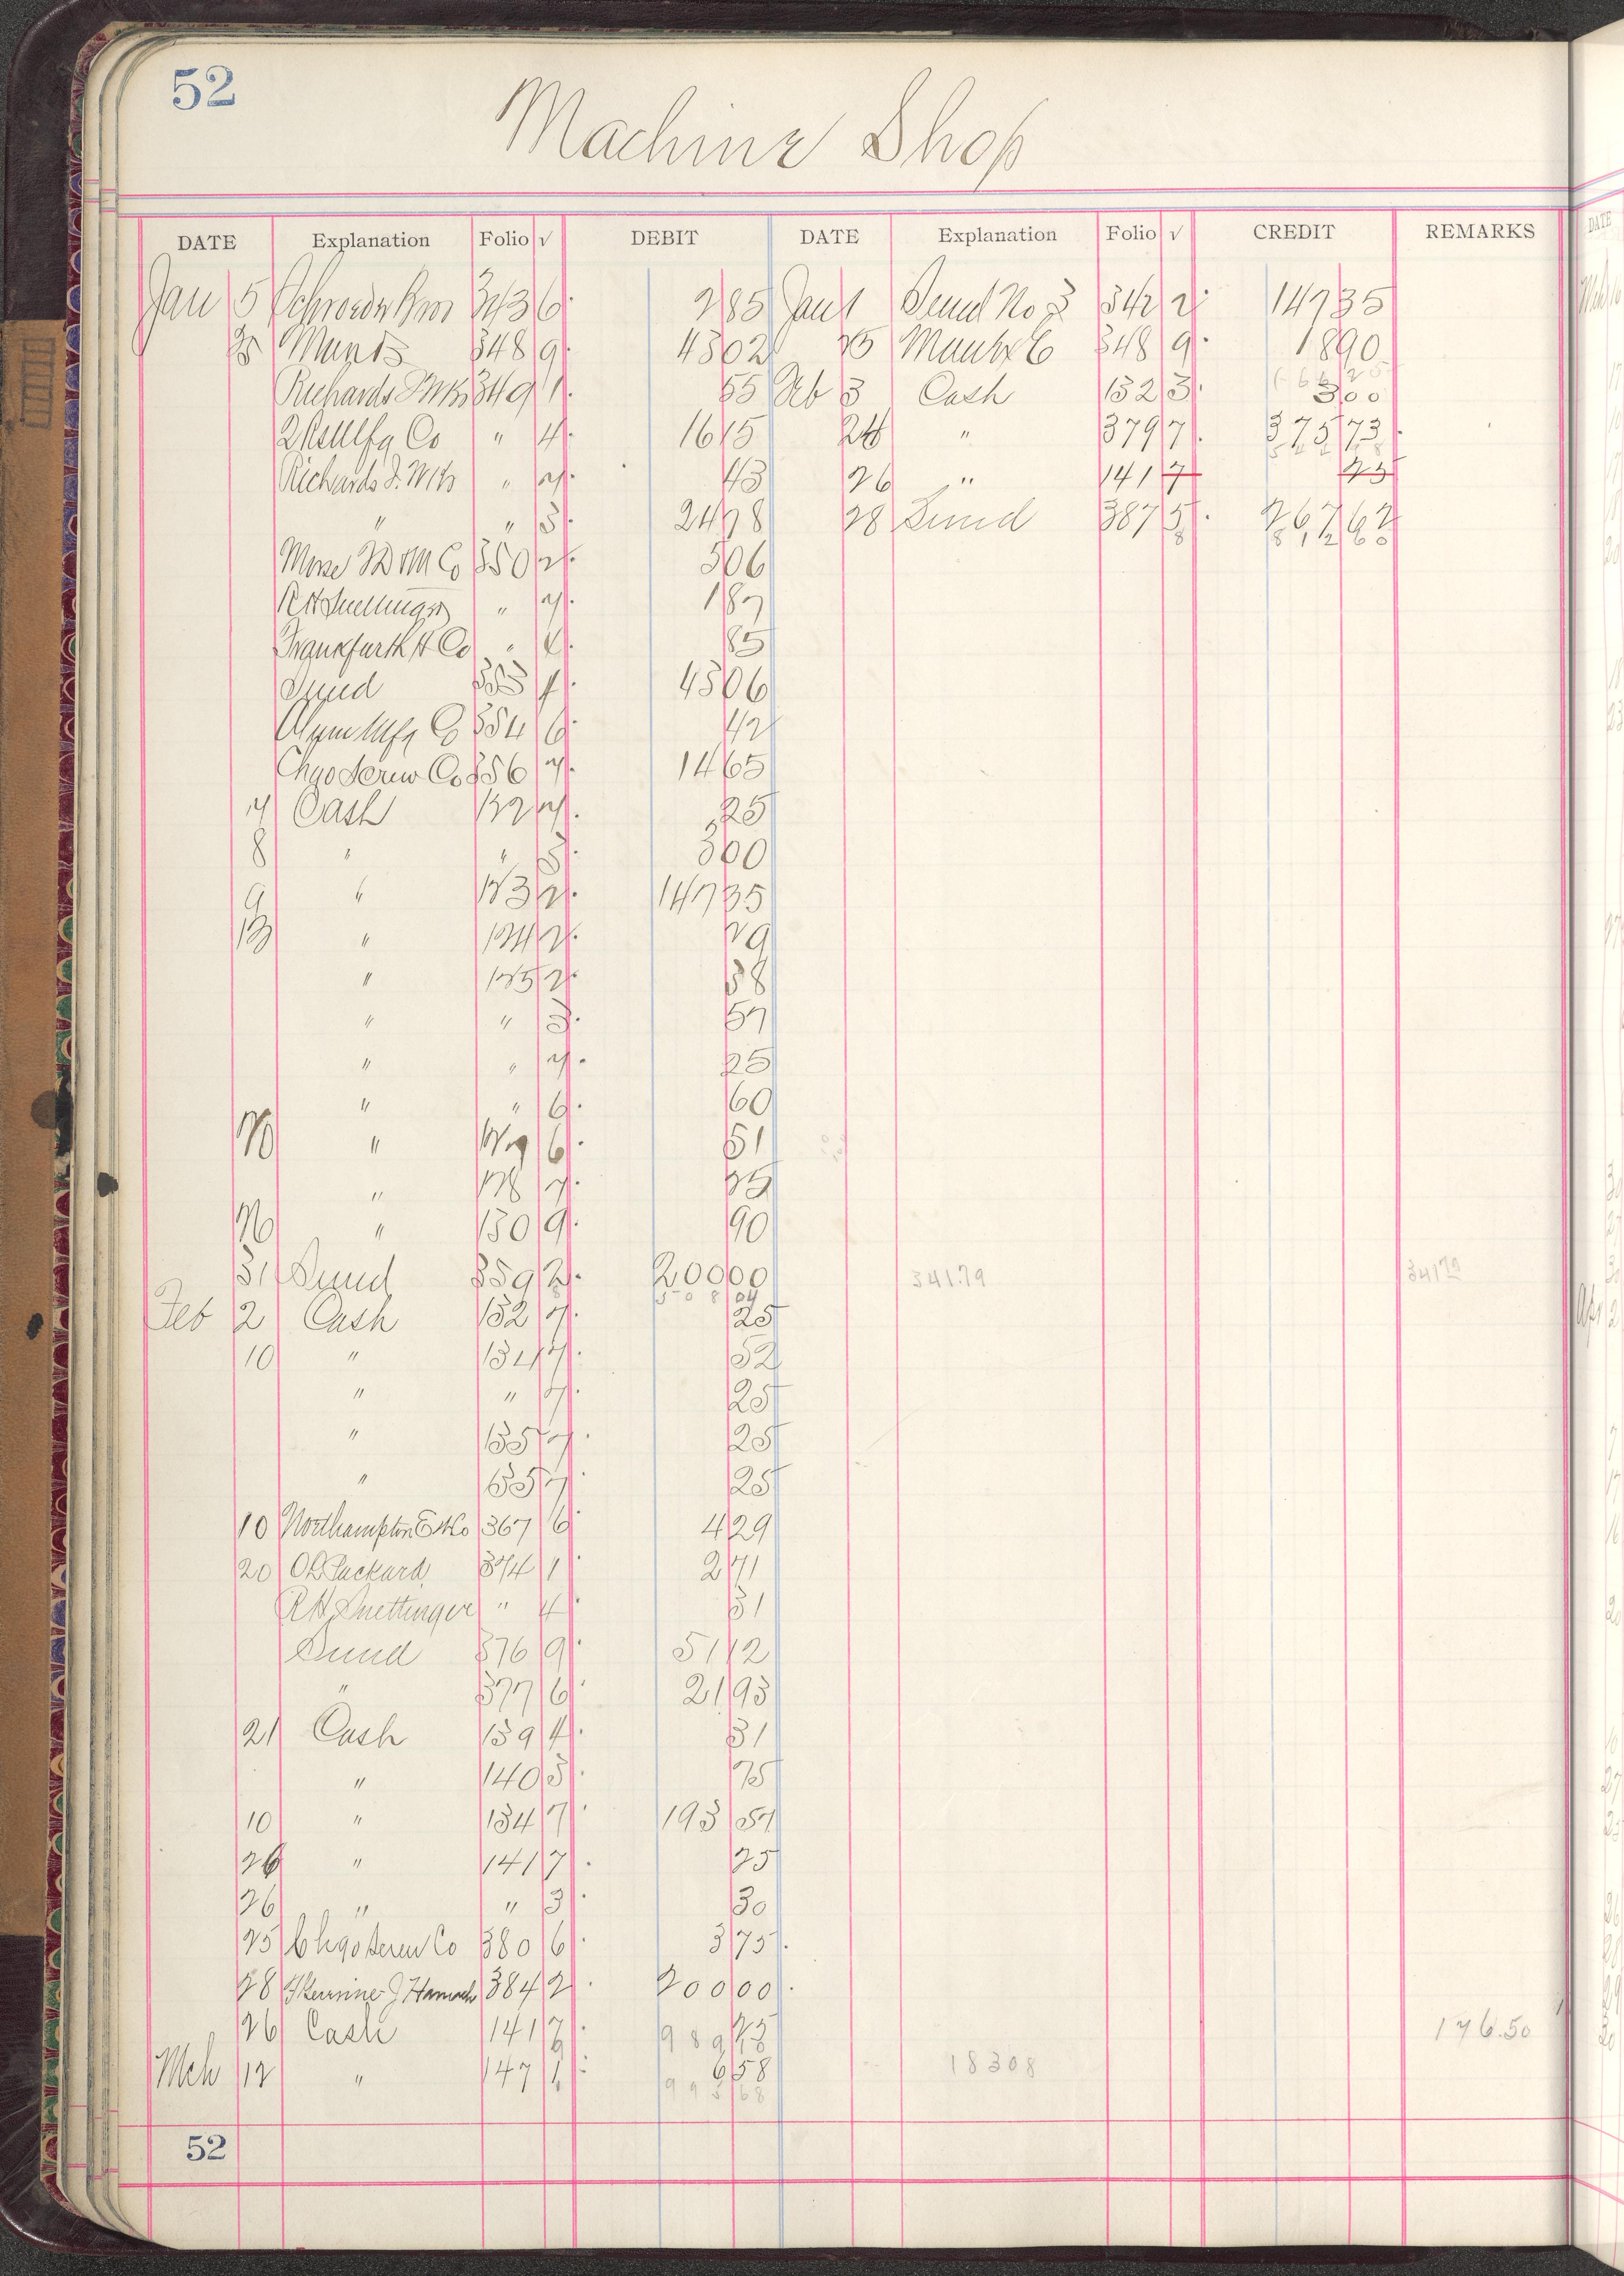 52
Machine Shop
DATE Explanation Folio √ DEBIT DATE Explanation Folio √ CREDIT REMARKS
Jan 5 Schroeder Bros 343 6 2 85 Jan 1 Sund No 3 342 2 147 35
348 9 43 02 25 348 9 18 90
Richards 349 1 55 Feb 3 Cash 132 3 3 00
166 25
Mfg Co " 4 16 15 24 " 379 7 375 73
Richards " 7 43 26 " 141 7 25
" " 3 24 78 28 Sund 387 5 267 62
812 60
Morse T D & M Co 350 2 5 06
R H " 7 1 87
Frankfurth H Co " 85
Sund 353 1 43 06
Mfg Co 354 6 42
Chgo Screw Co 356 7 14 65
7 Cash 122 7 25
8 " " 3 3 00
9 " 123 2 147 35
13 " 124 2 29
" 125 2 38
" " 3 57
" " 7 25
" " 6 60
20 " 127 6 51
" 128 7 25
26 " 130 9 90
31 Sund 359 2 200 00 341.79 341 79
508 04
Feb 2 Cash 132 7 25
10 " 134 7 52
" " 7 25
" 135 7 25
" 135 7 25
10 Northampton E W Co 367 6 4 29
20 Packard 374 1 2 71
R H Suettinger " 4 31
Sund 376 9 51 12
" 377 6 21 93
21 Cash 139 4 31
" 140 3 75
10 " 134 7 193 57
26 " 141 7 25
26 " " 3 30
25 Chgo Screw Co 380 6 3 75
28 384 2 200 00
26 Cash 141 7 25 176.50
989
Mch 12 " 147 1 6 58 183 08
995 68
52